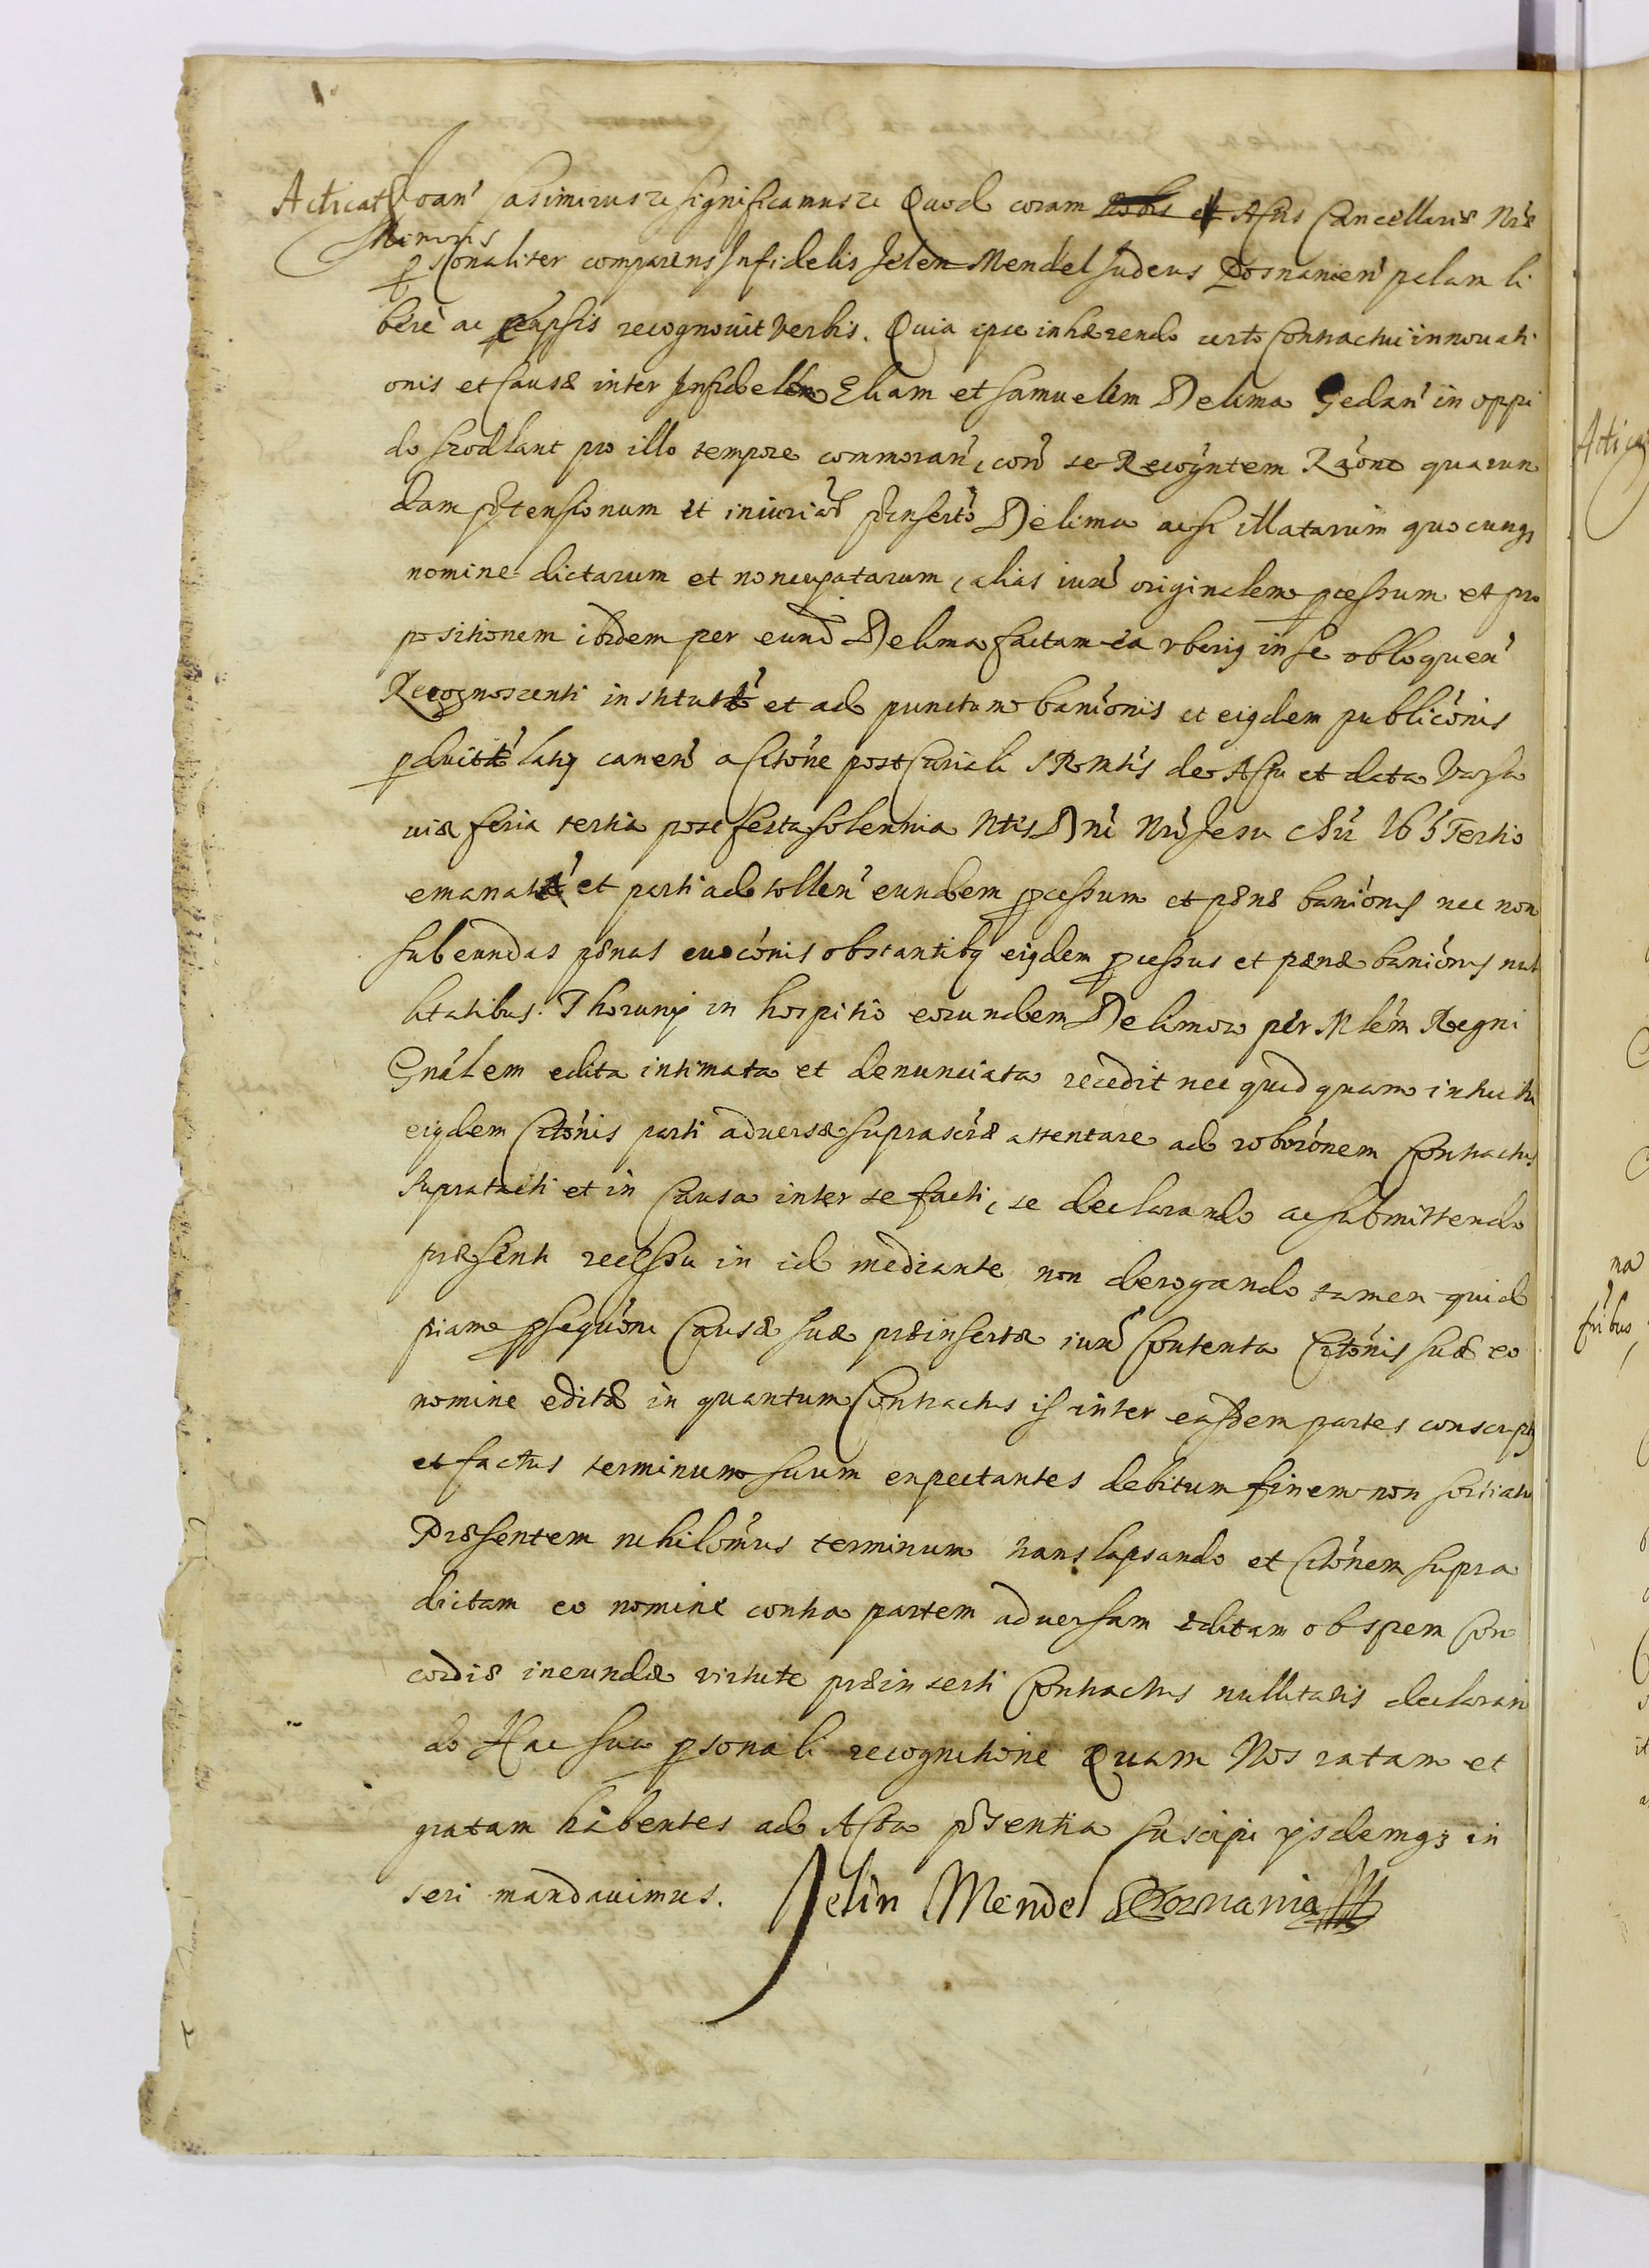 Acticat Joan' Casimirus &c significamus &c Quod coram Nobis et Actis Cancellariæ Nræ
Minoris
psonaliter comparens Infidelis Jelen Mendel Judeus Posnanien' palam li
berè ac expssis recognouit verbis. Quia ipse inhærendo certo Contractui innouati
onis et Causæ inter Infidelem Eliam et Samuelem Delima Gedan' in oppi
do Szodlant pro illo tempore commoran', cora se Recogntem Raōne quarun
dam prtensionum et iniuriar' prinserto Delima acsi illatarum quocunq3
nomine dictarum et noncupatarum, alias iuxa originalem pcessum et pro
positionem ibidem per eund Delima factam ea vberig in se obloquen'
Recognoscenti institut' et ad punctum baniōnis et eigdem publicōnis
pduit' latig canen' a Citōne post Curiali SRMtis de Actu et data Varsa
uiæ feria tertia post festa solennia Ntis Dni Nri Jesu Chri 165 Tertio
emanat' et parti ad tollen' eundem pcessum et pænæ baniōnis nec non
subeundas pænas euocōnis obstantibg eigdem pcessus et pænæ baniōnis nul
litatibus. Thorunij in hospitio eorundem Delimow per Mlem Regni
Gnālem edita intimata et denunciata recedit nec quidquam intuitu
eigdem Citōnis parti aduersæ suprascræ attentare ad roborōnem Contractus
supratacti et in Causa inter se facti, se declarando ac submittendo
præsenti recessu in id mediante non derogando tamen quid
piam psequōni Causæ suæ præinsertæ iuxa Contenta Citōnis suæ eo
nomine editæ in quantum Contractus is inter easdem partes conscriptg
et factus terminum suum expectantes debitum finem non sortiatu
Præsentem nihilōmus terminum translapsando et Citōnem supra
dictam eo nomine contra partem aduersam editam ob spem Con
cordiæ ineundæ virtute præinserti Contractus nullitatis declaran
do Hac sua psonali recognitione Quam Nos ratam et
gratam habentes ad Acta prsentia suscipi ijsdemq3 in
seri mandauimus. Jelin Mendel Posnania